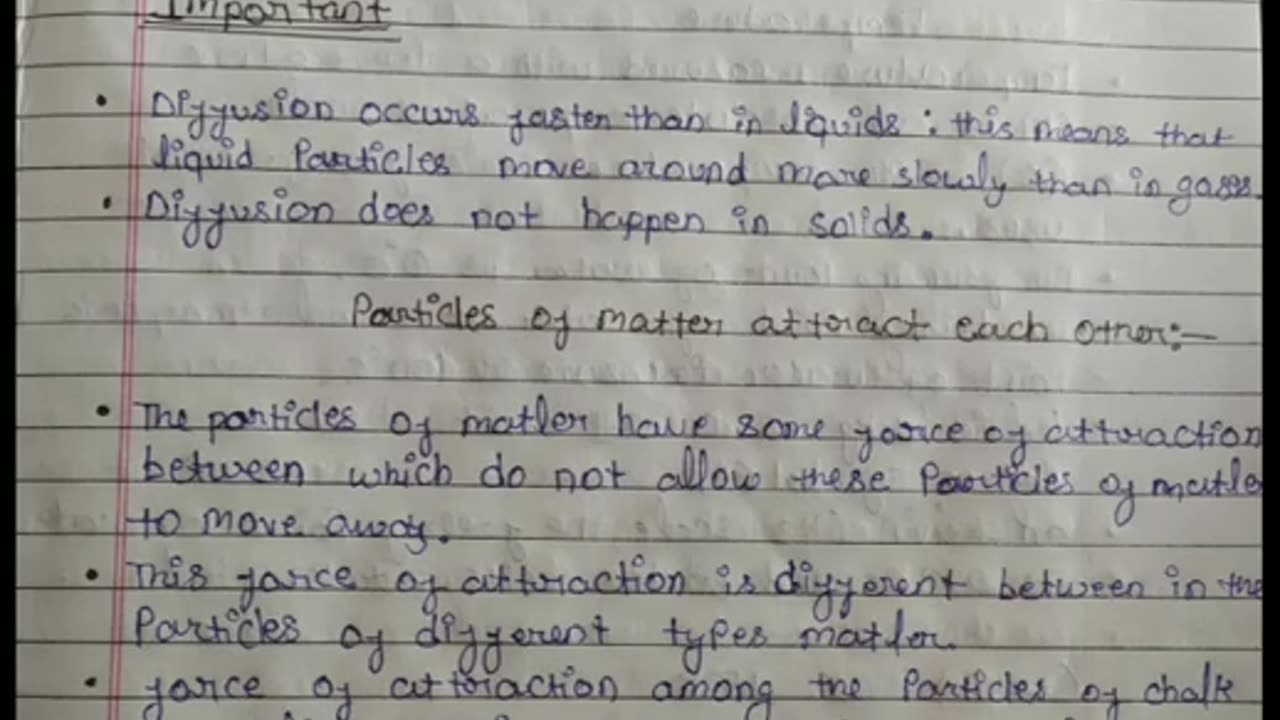 Important
• Diffusion occurs faster than in liquids : this means that
liquid Particles move around more slowly than in gases.
• Diffusion does not happen in solids.
Particles of matter attract each other:-
• The particles of matter have some force of attraction
between which do not allow these Particles of matte
to move away.
• This force of attraction is different between in the
Particles of different types matter.
• force of attraction among the Particles of chalk